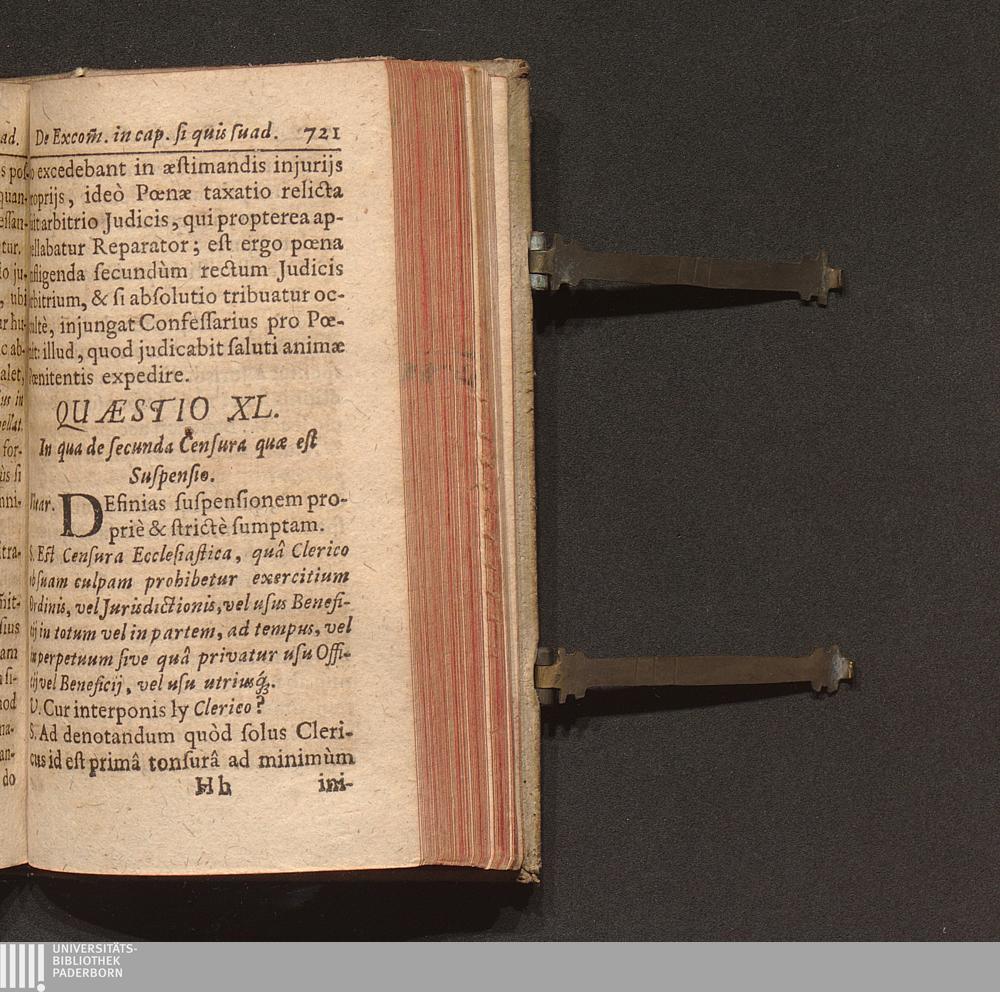 De Excom̃. in cap. ſi quis ſuad. 721
excedebant in æſtimandis injurijs
roprijs, ideò Pœnæ taxatio relicta
uit arbitrio Judicis, qui propterea ap-
ellabatur Reparator; eſt ergo pœna
nfligenda ſecundùm rectum Judicis
rbitrium, & ſi abſolutio tribuatur oc-
ultè, injungat Confeſſarius pro Pœ-
nit: illud, quod judicabit ſaluti animæ
Pœnitentis expedire.
QUÆSTIO XL.
In qua de ſecunda Cenſura quæ eſt
Suſpenſio.
DEfinias ſuſpenſionem pro-
priè & ſtrictè ſumptam.
S. Eſt Cenſura Eccleſiaſtica, quâ Clerico
ob ſuam culpam prohibetur exercitium
Ordinis, vel Jurisdictionis, vel uſus Benefi-
cij in totum vel in partem, ad tempus, vel
in perpetuum ſive quâ privatur uſu Offi-
cij vel Beneficij, vel uſu utriusq́;.
V. Cur interponis ly Clerico?
S. Ad denotandum quòd ſolus Cleri-
cus id eſt primâ tonſurâ ad minimùm
Hh ini-
ad.
quan-
eſſan-
tur.
io ju-
ubi
ur hu-
c ab-
alet,
ius in
pellat.
for-
ùs ſi
mni-
tra-
ſius
am
nſi-
nod
na-
an-
do
UNIVERSITÄTS-
BIBLIOTHEK
PADERBORN